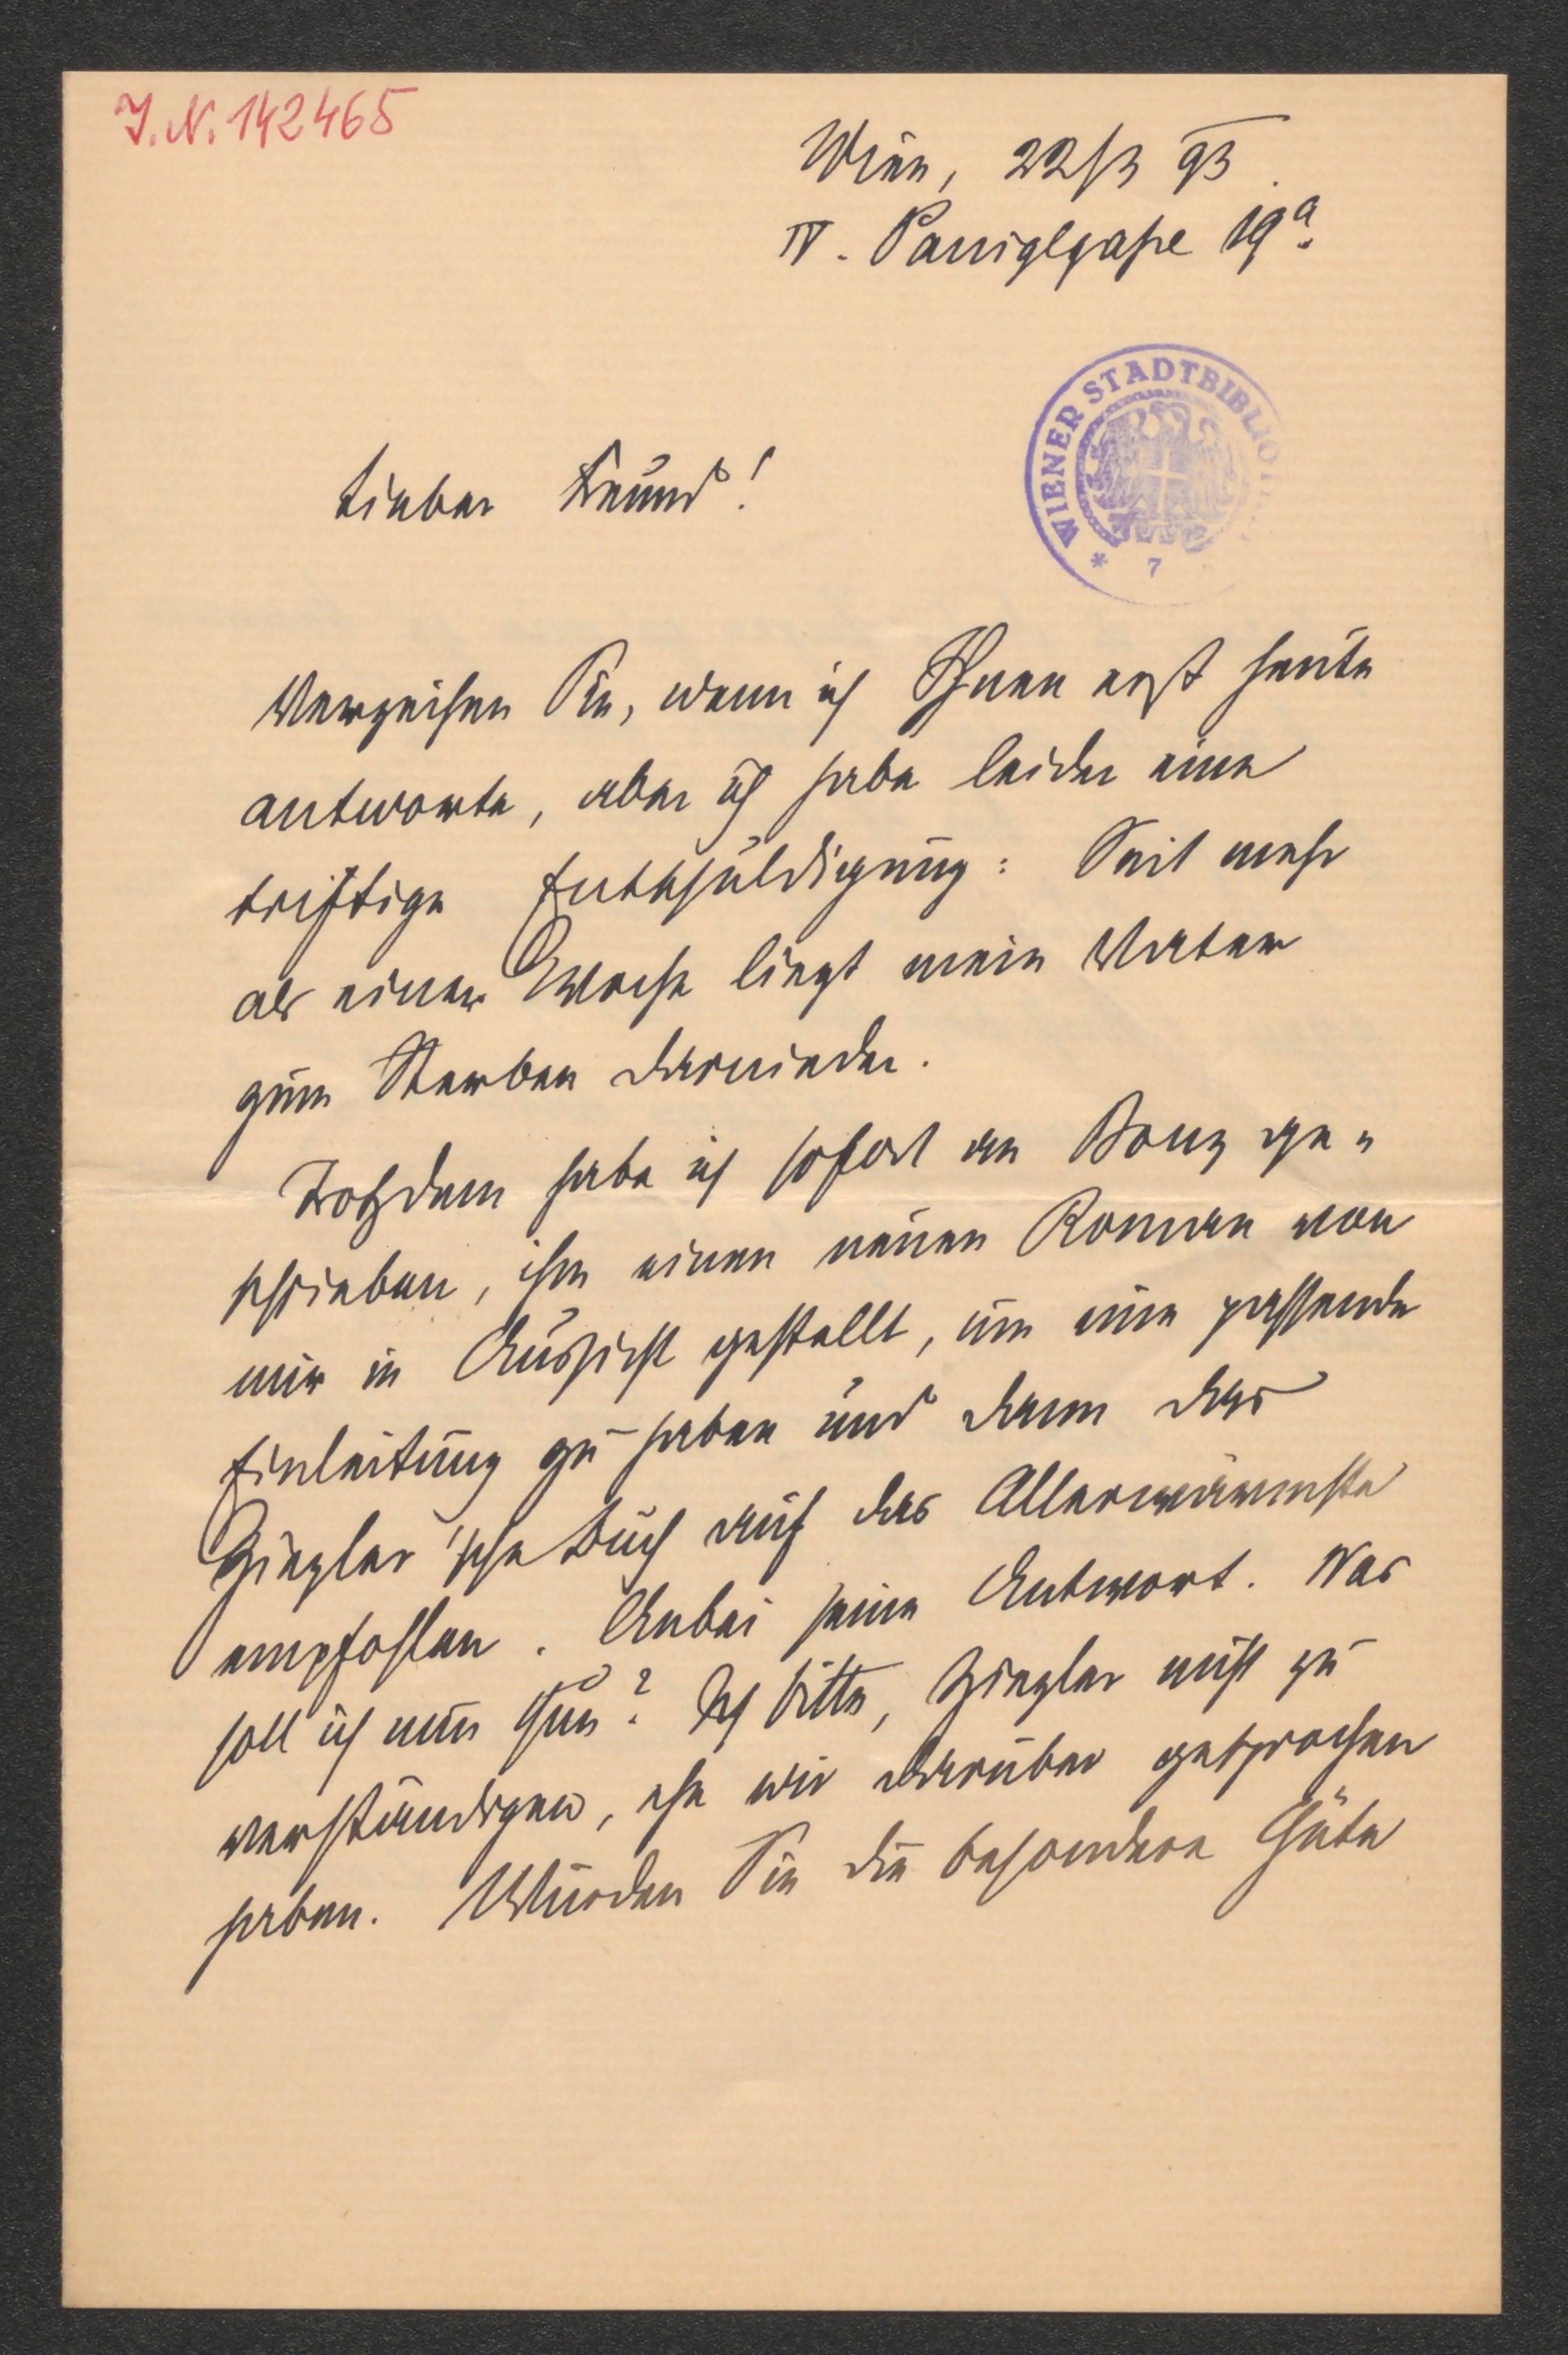 J. N. 142465
Wien, 22/3 93.
IV. Paniglgasse 19a.
WIENER STADTBIBLIO
* 7
Lieber Freund!
Verzeihen Sie, wenn ich Ihnen erst heute
antworte, aber ich habe leider eine
triftige Entschuldigung: Seit mehr
als einer Woche liegt mein Vater
zum Sterben darnieder.
Trotzdem habe ich sofort an Bonz ge-
schrieben, ihm einen neuen Roman von
mir in Aussicht gestellt, um eine passende
Einleitung zu haben und dann das
Ziegler'sche Buch auf das Allerwärmste
empfohlen. Anbei seine Antwort. Was
soll ich nun thun? Ich bitte, Ziegler nicht zu
verständigen, ehe wir darüber gesprochen
haben. Würden Sie die besondere Güte